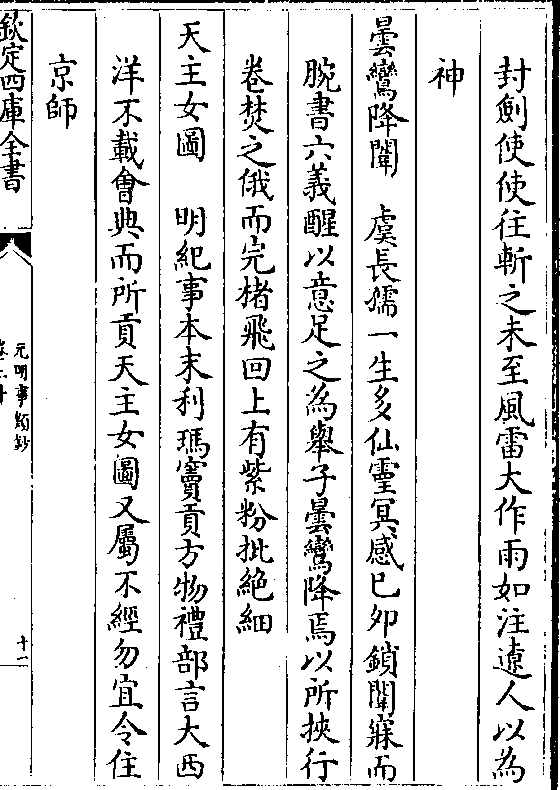 封劍使使往斬之未至風雷大作雨如注遠人以為
神
曇鸞降闈　虞長孺一生多仙靈冥感己卯鎖闈寐而
腕書六義醒以意足之為舉子曇鸞降焉以所挾行
卷焚之俄而完楮飛回上有紫粉批絶細
天主女圖　明紀事本末利瑪竇貢方物禮部言大西
洋不載會典而所貢天主女圖又屬不經勿宜令住
京師
欽定四庫全書
元明事類鈔
十一